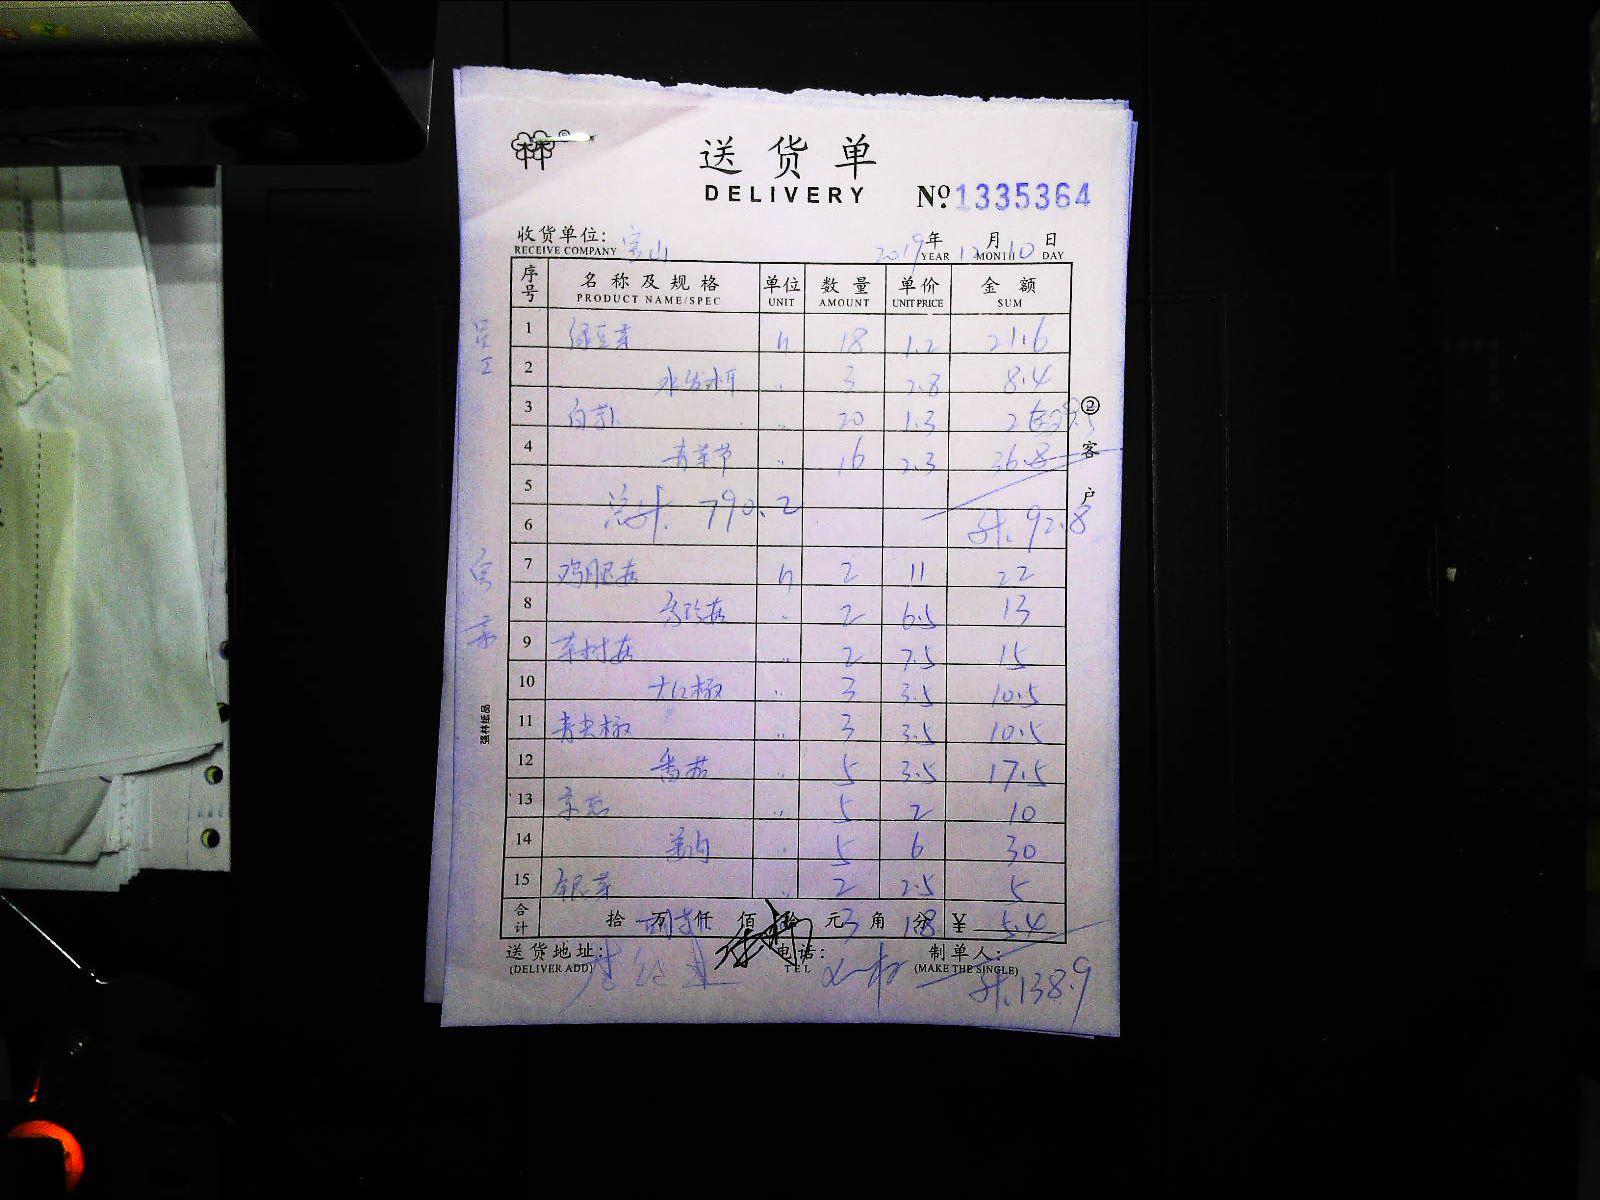 送货单
DELIVERY № 1335364
收货单位: 宝山 2019年12月10日
RECEIVE COMPANY YEAR MONTH DAY
序号 名称及规格 单位 数量 单价 金额
PRODUCT NAME/SPEC UNIT AMOUNT UNIT PRICE SUM
员工
1 绿豆芽 斤 18 1.2 21.6
2 水发木耳 〃 3 2.8 8.4
3 白萝卜 〃 20 1.3 26
4 青菜节 〃 16 2.3 36.8
5 总计. 790.2
6 计. 92.8
7 鸡腿菇 斤 2 11 22
8 秀珍菇 〃 2 6.5 13
9 茶树菇 〃 2 7.5 15
10 大红椒 〃 3 3.5 10.5
11 青尖椒 〃 3 3.5 10.5
12 番茄 〃 5 3.5 17.5
13 京葱 〃 5 2 10
14 姜肉 〃 5 6 30
15 银芽 〃 2 2.5 5
合计 拾 万 仟 佰 拾 元 角 分 ¥ 5.4
3 1.8
送货地址: 电话: 制单人:
(DELIVER ADD) TEL (MAKE THE SINGLE)
计. 138.9
② 客户
强林纸品